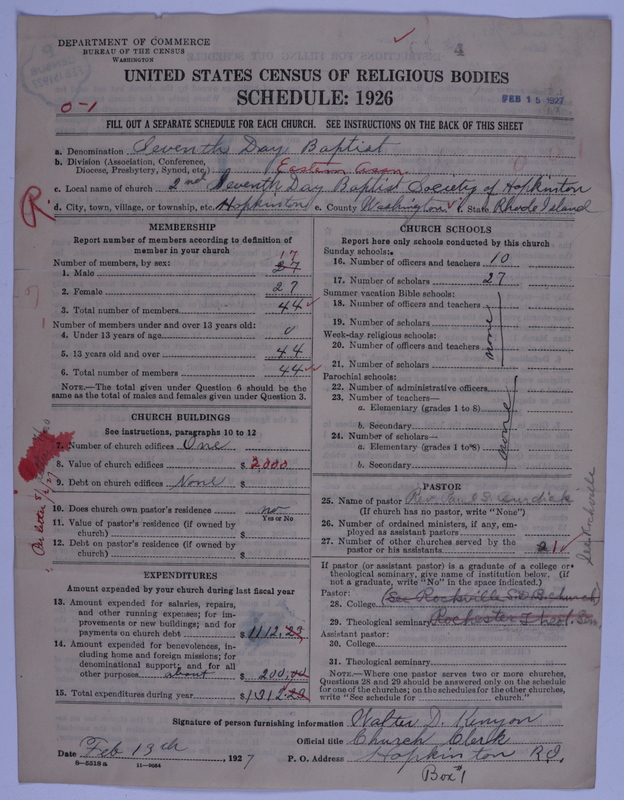 4
DEPARTMENT OF COMMERCE
BUREAU OF THE CENSUS
WASHINGTON
UNITED STATES CENSUS OF RELIGIOUS BODIES
SCHEDULE: 1926
FEB 15 1927
0-1
FILL OUT A SEPARATE SCHEDULE FOR EACH CHURCH. SEE INSTRUCTIONS ON THE BACK OF THIS SHEET
a. Denomination Seventh Day Baptist
b. Division (Association, Conference, Diocese, Presbytery, Synod, etc.) Eastern Assn.
c. Local name of church 2nd Seventh Day Baptist Society of Hopkinton
d. City, town, village, or township, etc. Hopkinton e. County Washington f. State Rhode Island
R
MEMBERSHIP
Report number of members according to definition of
member in your church
Number of members, by sex:
17
1. Male 27
2. Female 27
3. Total number of members 44
Number of members under and over 13 years old:
4. Under 13 years of age 0
5. 13 years old and over 44
6. Total number of members 44
NOTE.—The total given under Question 6 should be
the same as the total of males and females given under Question 3.
CHURCH BUILDINGS
See instructions, paragraphs 10 to 12
7. Number of church edifices One
8. Value of church edifices $ 2,000
9. Debt on church edifices None $
10. Does church own pastor's residence no
Yes or No
11. Value of pastor's residence (if owned by
church) $
12. Debt on pastor's residence (if owned by
church) $
EXPENDITURES
Amount expended by your church during last fiscal year
13. Amount expended for salaries, repairs,
and other running expenses; for im-
provements or new buildings; and for
payments on church debt $ 1112.22
14. Amount expended for benevolences, in-
cluding home and foreign missions; for
denominational support; and for all
other purposes about $ 200.00
15. Total expenditures during year $ 1312.22
CHURCH SCHOOLS
Report here only schools conducted by this church
Sunday schools:
16. Number of officers and teachers 10
17. Number of scholars 27
Summer vacation Bible schools:
18. Number of officers and teachers
19. Number of scholars
Week-day religious schools:
20. Number of officers and teachers
none
21. Number of scholars
Parochial schools:
22. Number of administrative officers
23. Number of teachers—
a. Elementary (grades 1 to 8)
b. Secondary
none
24. Number of scholars—
a. Elementary (grades 1 to 8)
b. Secondary
PASTOR
25. Name of pastor Rev. Paul S. Burdick
(If church has no pastor, write "None")
26. Number of ordained ministers, if any, em-
ployed as assistant pastors
27. Number of other churches served by the
pastor or his assistants 1
See Rockville
If pastor (or assistant pastor) is a graduate of a college or
theological seminary, give name of institution below. (If
not a graduate, write "No" in the space indicated.)
Pastor: (See Rockville S.D.B. church)
28. College
29. Theological seminary Rochester Theol. Sem
Assistant pastor:
30. College
31. Theological seminary
NOTE.—Where one pastor serves two or more churches,
Questions 28 and 29 should be answered only on the schedule
for one of the churches; on the schedules for the other churches,
write "See schedule for church."
Signature of person furnishing information Walter D. Kenyon
Official title Church Clerk
Date Feb 13th, 1927 P. O. Address Hopkinton R.I.
8—5518a 11—9064
Box 1